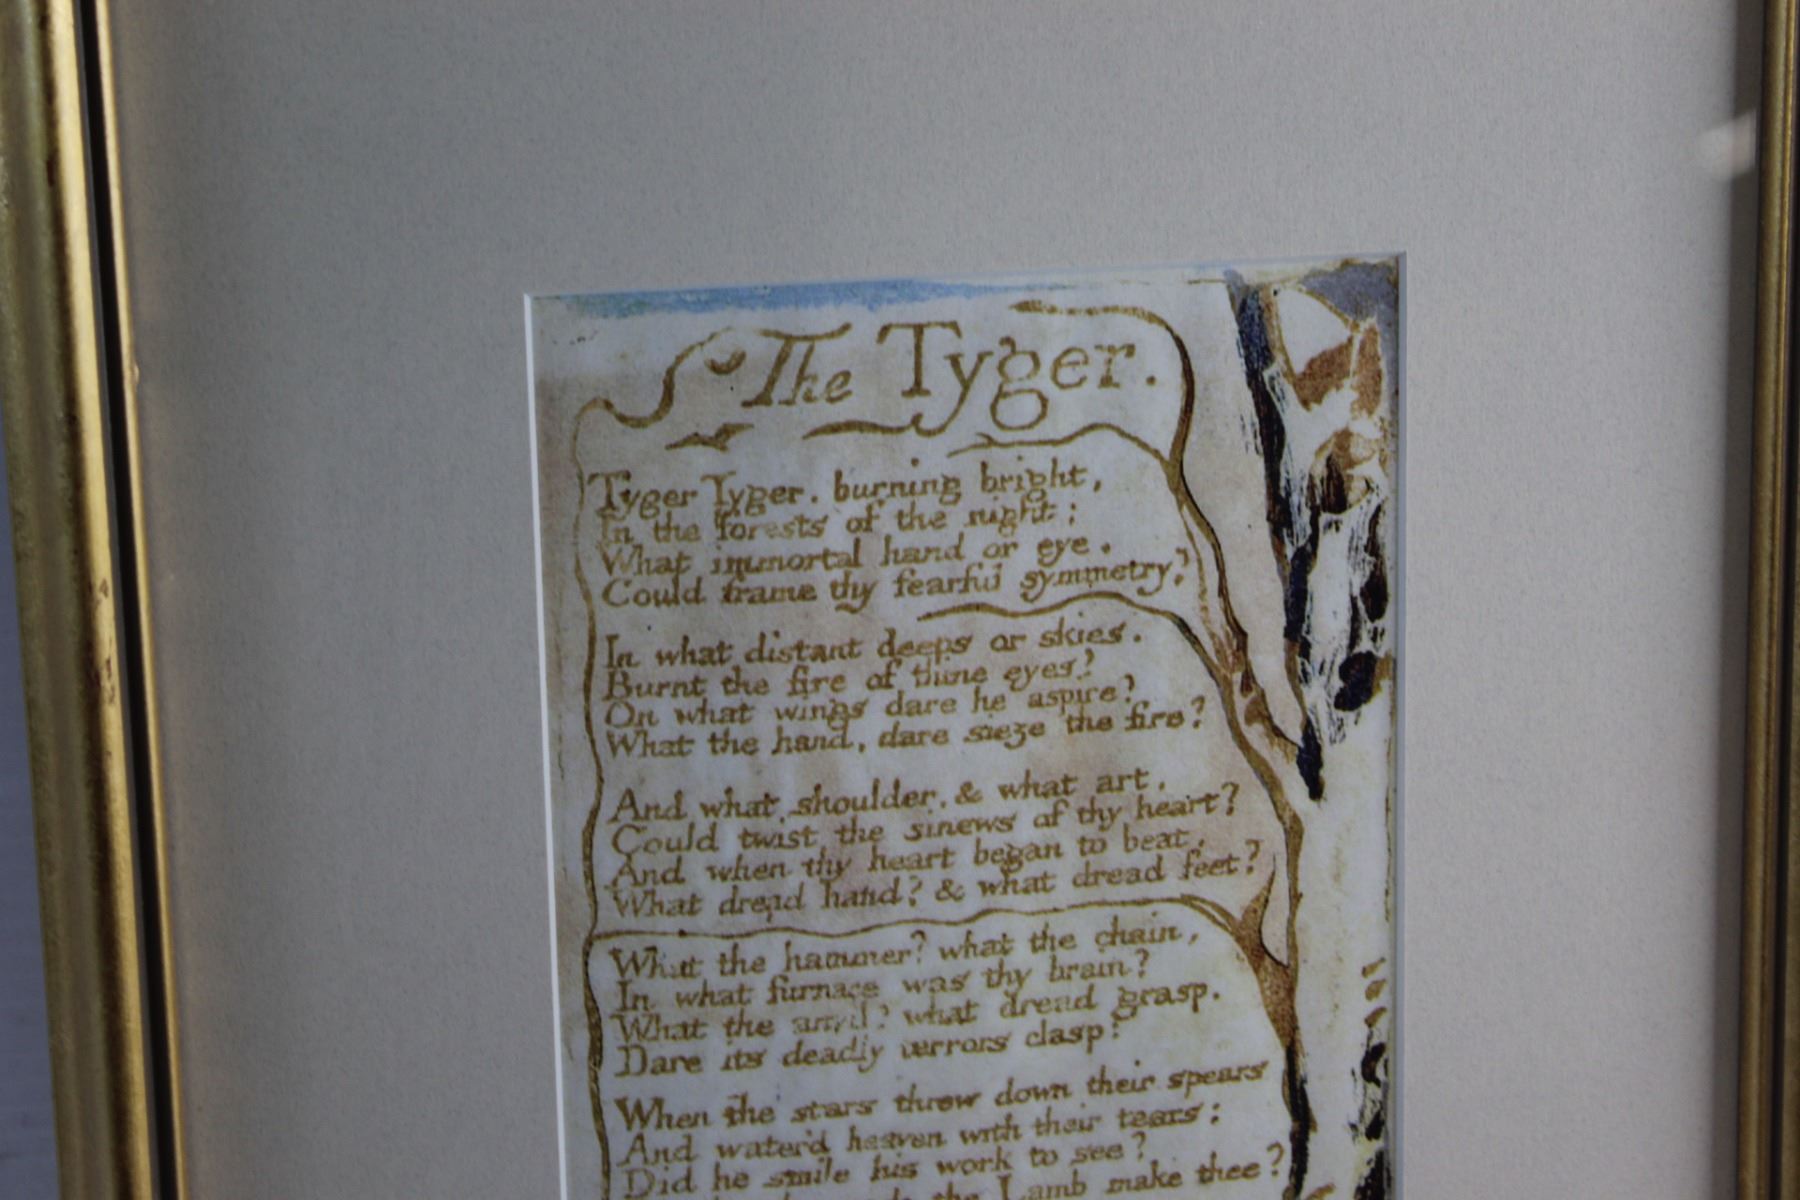 The Tyger.
Tyger Tyger. burning bright,
In the forests of the night:
What immortal hand or eye.
Could frame thy fearful symmetry?
In what distant deeps or skies.
Burnt the fire of thine eyes?
On what wings dare he aspire?
What the hand, dare sieze the fire?
And what shoulder, & what art,
Could twist the sinews of thy heart?
And when thy heart began to beat,
What dread hand? & what dread feet?
What the hammer? what the chain,
In what furnace was thy brain?
What the anvil? what dread grasp.
Dare its deadly terrors clasp?
When the stars threw down their spears
And water'd heaven with their tears:
Did he smile his work to see?
the Lamb make thee?